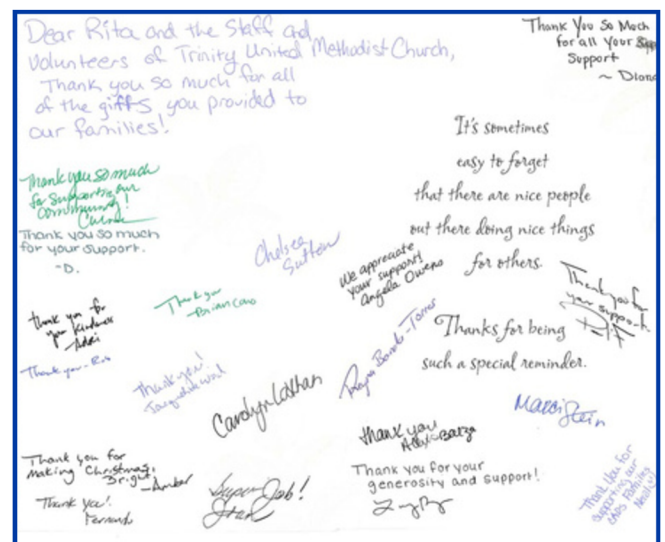 Dear Rita and the Staff and
Volunteers of Trinity United Methodist Church,
Thank you so much for all
of the gifts you provided to
our families!
Thank You So Much
for all Your
Support
~ Diona
It's sometimes
easy to forget
that there are nice people
out there doing nice things
for others.
Thanks for being
such a special reminder.
Thank you so much
for supporting our
community!
Thank you so much
for your support.
-D.
Chelsea
Sutton
We appreciate
your support!
Angela Owens
Thank you for
your support
thank you for
your kindness
Thank you
Thank you - Rob
Thank you!
Carolyn Lathan
Marci Stein
thank you
Thank you for your
generosity and support!
Thank you for
making Christmas
Bright,
-Amber
Thank you!
Fernando
Super Job!
Thank You for
supporting our
families